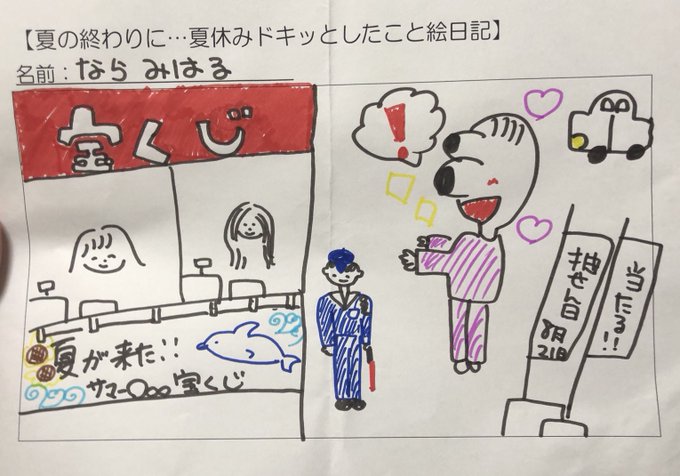 【夏の終わりに…夏休みドキッとしたこと絵日記】
名前：なら みはる
宝くじ
!
当たる!!
抽せん日
8月
21日
夏が来た!!
サマー〇〇〇宝くじ